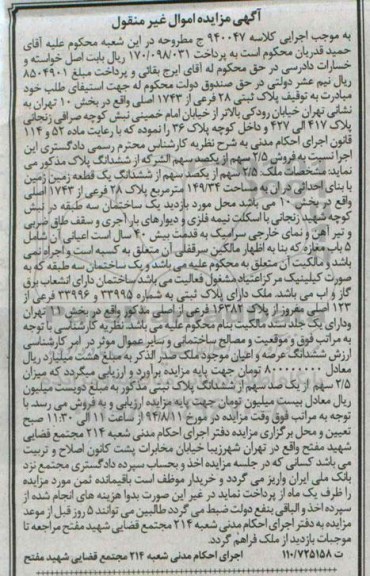 آگهی مزایده اموال غیر منقول
به موجب اجرایی کلاسه ۹۴۰۰۴۷ ج مطروحه در این شعبه محکوم علیه آقای
حمید قدریان محکوم است به پرداخت ۱۷۰/۰۹۸/۰۳۱ ریال بابت اصل خواسته و
خسارات دادرسی در حق محکوم له آقای ایرج بقائی و پرداخت مبلغ ۸۵۰۴۹۰۱
ریال نیم عشر دولتی در حق صندوق دولت محکوم له جهت استیفای طلب خود
مبادرت به توقیف پلاک ثبتی ۲۸ فرعی از ۱۷۴۳ اصلی واقع در بخش ۱۰ تهران به
نشانی تهران خیابان رودکی بالاتر از خیابان امام خمینی نبش کوچه صرافی زنجانی
پلاک ۴۱۷ الی ۴۲۷ و داخل کوچه پلاک ۳۶ را نموده که با رعایت ماده ۵۲ و ۱۱۴
قانون اجرای احکام مدنی به شرح نظریه کارشناس محترم رسمی دادگستری این
اجرا نسبت به فروش ۲/۵ سهم از یکصد سهم الشرکه از ششدانگ پلاک مذکور می
نماید: مشخصات ملک ۲/۵ سهم از یکصد سهم از ششدانگ یک قطعه زمین زمین
با بنای احداثی در آن به مساحت ۱۴۹/۳۴ مترمربع پلاک ۲۸ فرعی از ۱۷۴۳ اصلی
واقع در بخش ۱۰ می باشد محل مورد بازدید یک ساختمان سه طبقه در نبش
کوچه شهید زنجانی با اسکلت نیمه فلزی و دیوارهای بار آجری و سقف طاق ضربی
و تیر آهن و نمای خارجی سرامیک به قدمت بیش ۴۰ سال است اعیانی آن شامل
۵ باب مغازه که بنا به اظهار مالکین سرقفلی آن متعلق به کسبه است و اجراه نمی
باشد و مالکیت آن متعلق به محکوم علیه می باشد و یک ساختمان سه طبقه که به
صورت کیلینیک مرکز اعتیاد مشغول فعالیت می باشد ساختمان دارای انشعاب برق
گاز و آب می باشد. ملک دارای پلاک ثبتی به شماره ۳۳۹۹۵ و ۳۳۹۹۶ فرعی از
۱۲۳ اصلی مفروز از پلاک ۱۶۳۸۲ فرعی از اصلی مذکور واقع در بخش ۱۰ تهران
ودارای یک جلد سند مالکیت بنام محکوم علیه می باشد. نظریه کارشناسی با توجه
به مراتب فوق و موقعیت و مصالح ساختمانی و سایر عموال موثر در امر کارشناسی
ارزش ششدانگ عرصه و اعیان موجود ملک صدر الذکر به مبلغ هشت میلیارد ریال
معادل ۸۰۰۰۰۰۰۰۰ تومان جهت پایه مزایده برآورد و ارزیابی میگردد که میزان
۲/۵ سهم از یک صد سهم از ششدانگ پلاک ثبتی مذکور به مبلغ دویست میلیون
ریال معادل بیست میلیون تومان جهت پایه مزایده ارزیابی و به فروش می رسد. با
توجه به مراتب فوق وقت مزایده در مورخ ۹۴/۸/۱۱ از ساعت ۱۱ الی ۱۱:۳۰ صبح
تعیین و محل برگزاری مزایده دفتر اجرای احکام مدنی شعبه ۲۱۴ مجتمع قضایی
شهید مفتح واقع در تهران شهرزیبا خیابان مخابرات پشت کانون اصلاح و تربیت
می باشد کسانی که در جلسه مزایده اخذ و بحساب سپرده دادگستری مجتمع نزد
بانک ملی ایران واریز می گردد و خریدار موظف است باقیمانده ثمن مورد مزایده
را ظرف یک ماه از پرداخت نماید در غیر این صورت بدوا هزینه های انجام شده از
سپرده اخذ و الباقی بنفع دولت ضبط می گردد طالبین می توانند ۵ روز قبل از موعد
مزایده به دفتر اجرای احکام مدنی شعبه ۲۱۴ مجتمع قضایی شهید مفتح مراجعه تا
موجبات بازدید از ملک فراهم گردد.
ت ۱۱۰/۷۲۵۱۵۸ اجرای احکام مدنی شعبه ۲۱۴ مجتمع قضایی شهید مفتح